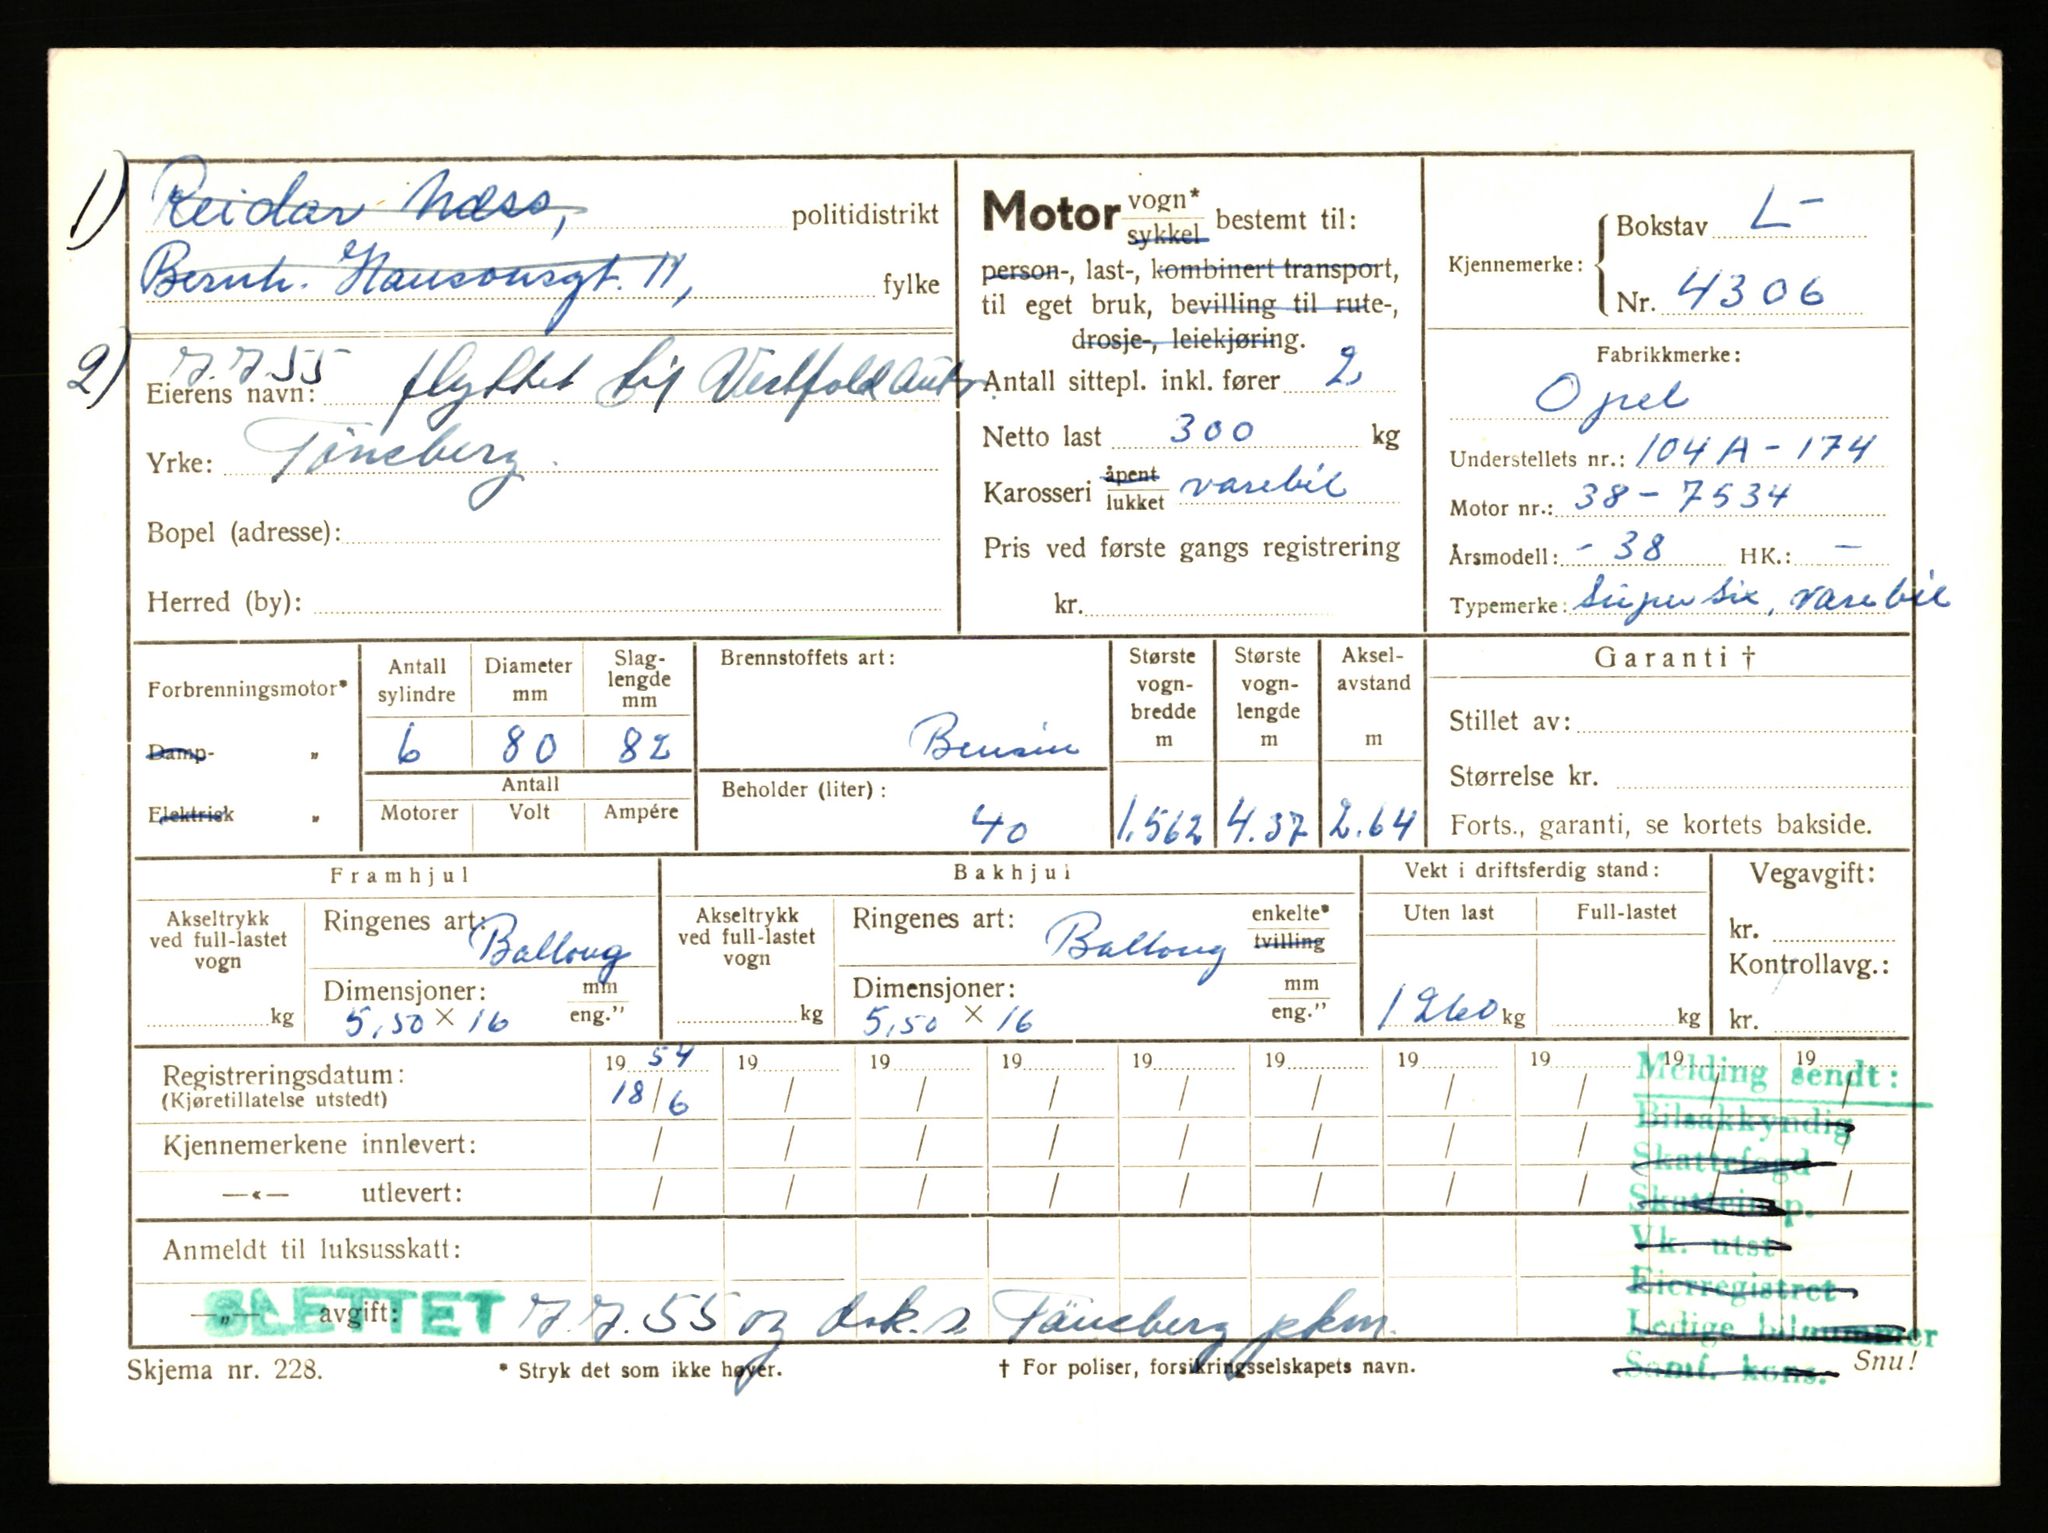 1) Reidar Næss, politidistrikt
Bernh. Hansonsgt. 11, fylke
2) 7.7.55 flyttet til Vestfold Auto
Eierens navn:
Yrke: Tönsberg.
Bopel (adresse):
Herred (by):
Motor vogn* sykkel bestemt til:
person-, last-, kombinert transport,
til eget bruk, bevilling til rute-,
drosje-, leiekjøring.
Antall sittepl. inkl. fører 2
Netto last 300 kg
Karosseri åpent lukket varebil
Pris ved første gangs registrering
kr.
Kjennemerke: Bokstav L-
Nr. 4306
Fabrikkmerke:
Opel
Understellets nr.: 104A-174
Motor nr.: 38-7534
Årsmodell: -38 HK.: -
Typemerke: Super Six, varebil
Forbrenningsmotor*
Damp- „
Elektrisk „
Antall sylindre 6
Diameter mm 80
Slag-lengde mm 82
Antall
Motorer Volt Ampére
Brennstoffets art:
Bensin
Beholder (liter):
40
Største vogn-bredde m 1,562
Største vogn-lengde m 4.37
Aksel-avstand m 2.64
Garanti †
Stillet av:
Størrelse kr.
Forts., garanti, se kortets bakside.
Framhjul
Akseltrykk ved full-lastet vogn
kg
Ringenes art: Ballong
Dimensjoner: mm eng."
5,50 × 16
Bakhjul
Akseltrykk ved full-lastet vogn
kg
Ringenes art: Ballong enkelte* tvilling
Dimensjoner: mm eng."
5,50 × 16
Vekt i driftsferdig stand:
Uten last Full-lastet
1260 kg kg
Vegavgift:
kr.
Kontrollavg.:
kr.
Registreringsdatum: 19 54 19 19 19 19 19 19 19 19 19
(Kjøretillatelse utstedt) 18/6 / / / / / / / / /
Kjennemerkene innlevert: / / / / / / / / / /
—«— utlevert: / / / / / / / / / /
Anmeldt til luksusskatt:
—„— avgift:
SLETTET 7.7.55 og dok. s. Tönsberg pkm.
Melding sendt:
Bilsakkyndig
Skattefogd
Skatteinsp.
Vk. utst
Eierregistret
Ledige bilnummer
Samf. kons.
Skjema nr. 228.
* Stryk det som ikke høver.
† For poliser, forsikringsselskapets navn.
Snu!